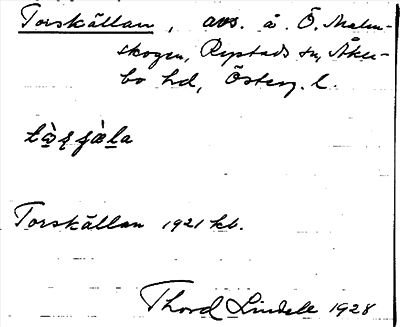 Torskällan, avs. å Ö. Malm-
skogen, Rystads sn, Åker-
bo hd, Österg. l.
Torskällan 1921 kb.
Thord Lindell 1928